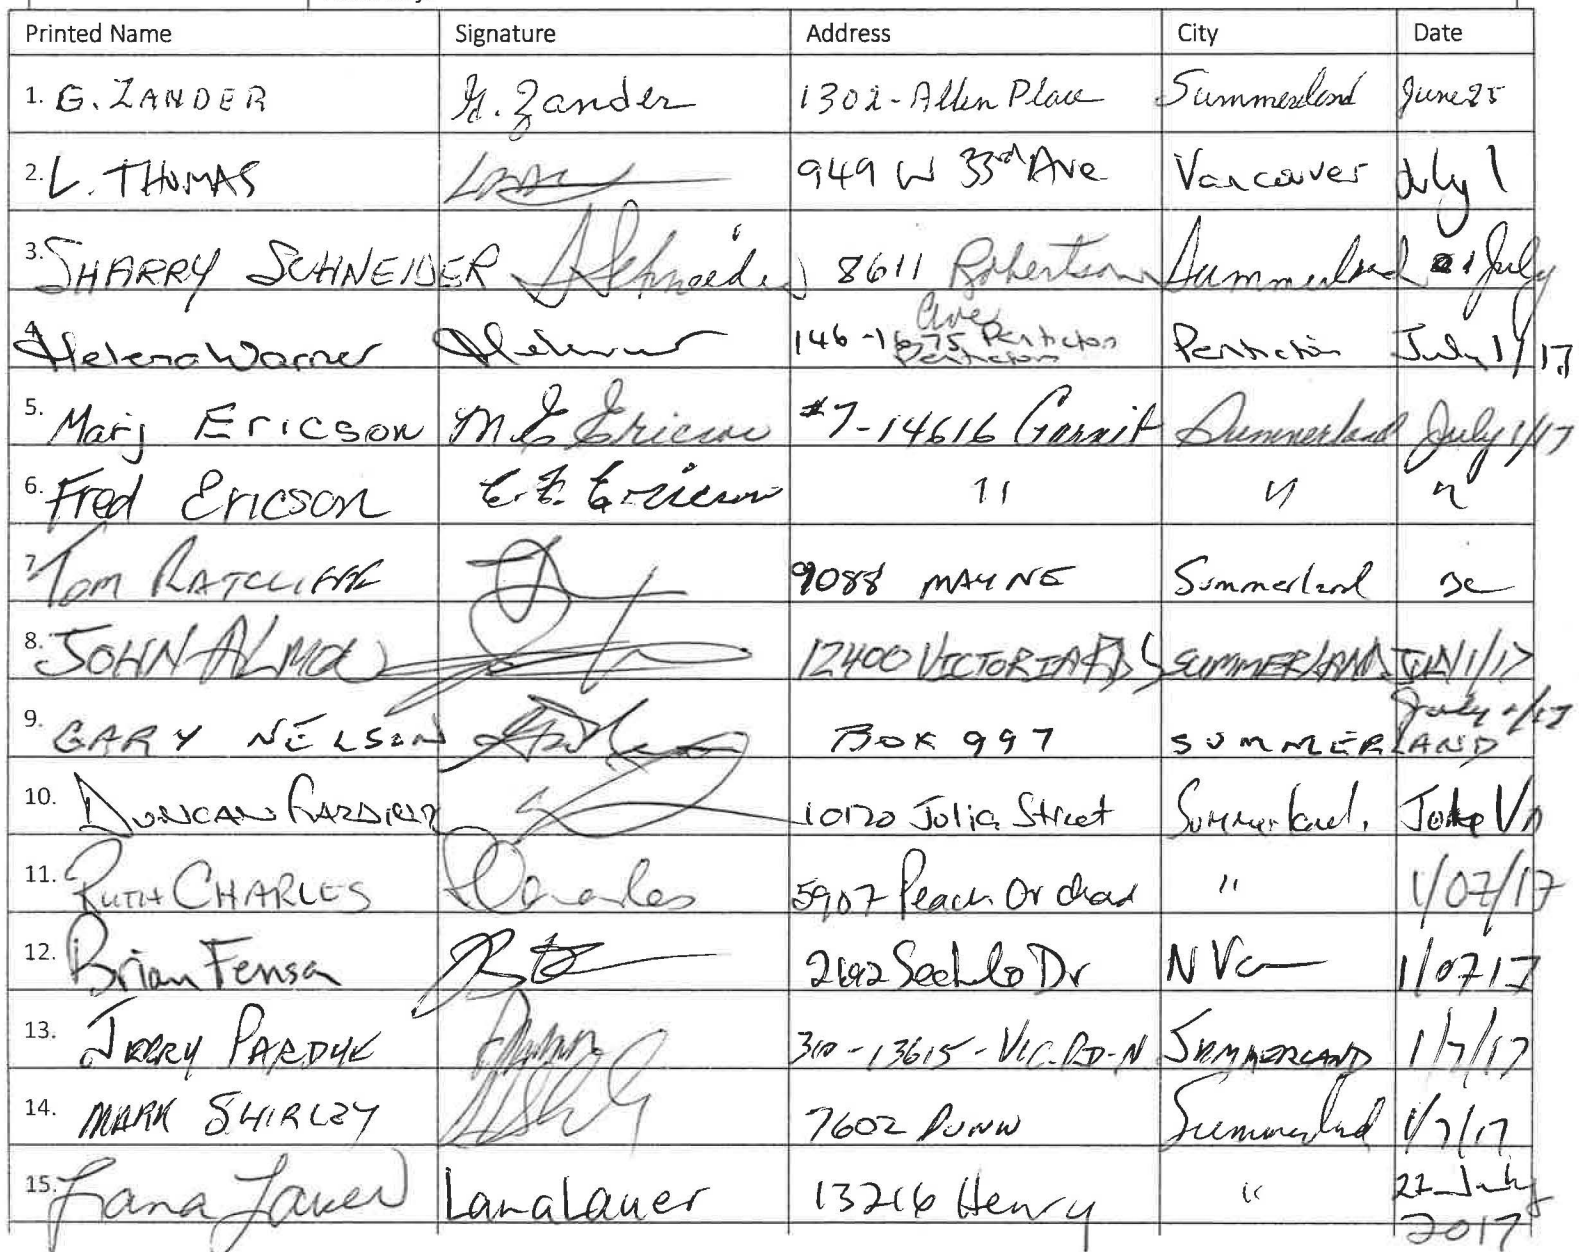 Printed Name Signature Address City Date
1. G. ZANDER G. Zander 1302-Allen Place Summerland June 25
2. L. THOMAS 949 W 33rd Ave Vancouver July 1
3. SHARRY SCHNEIDER S Schneider 8611 Robertson Ave Summerland 1 July
4. Helena Warner 146-1675 Penticton Penticton Penticton July 1/17
5. Marj Ericson M. E. Ericson #7-14616 Garnit Summerland July 1/17
6. Fred Ericson E. F. Ericson " " "
7. Tom RATCLIFFE 9088 MAYNE Summerland
8. JOHN 12400 VICTORIA RD S SUMMERLAND JULY 1/17
9. GARY NELSON BOX 997 SUMMERLAND July 1/17
10. DUNCAN 10120 Julia Street Summerland.
11. RUTH CHARLES RCharles 5907 Peach Orchard " 1/07/17
12. Brian Fensa Dr N Van 1/07 17
13. JERRY PARDYK 310-13615-VIC. RD-N SUMMERLAND 1/7/17
14. MARK SHIRLEY 7602 DUNN Summerland 1/7/17
15. Lana Lauer Lana Lauer 13216 Henry " July 2017